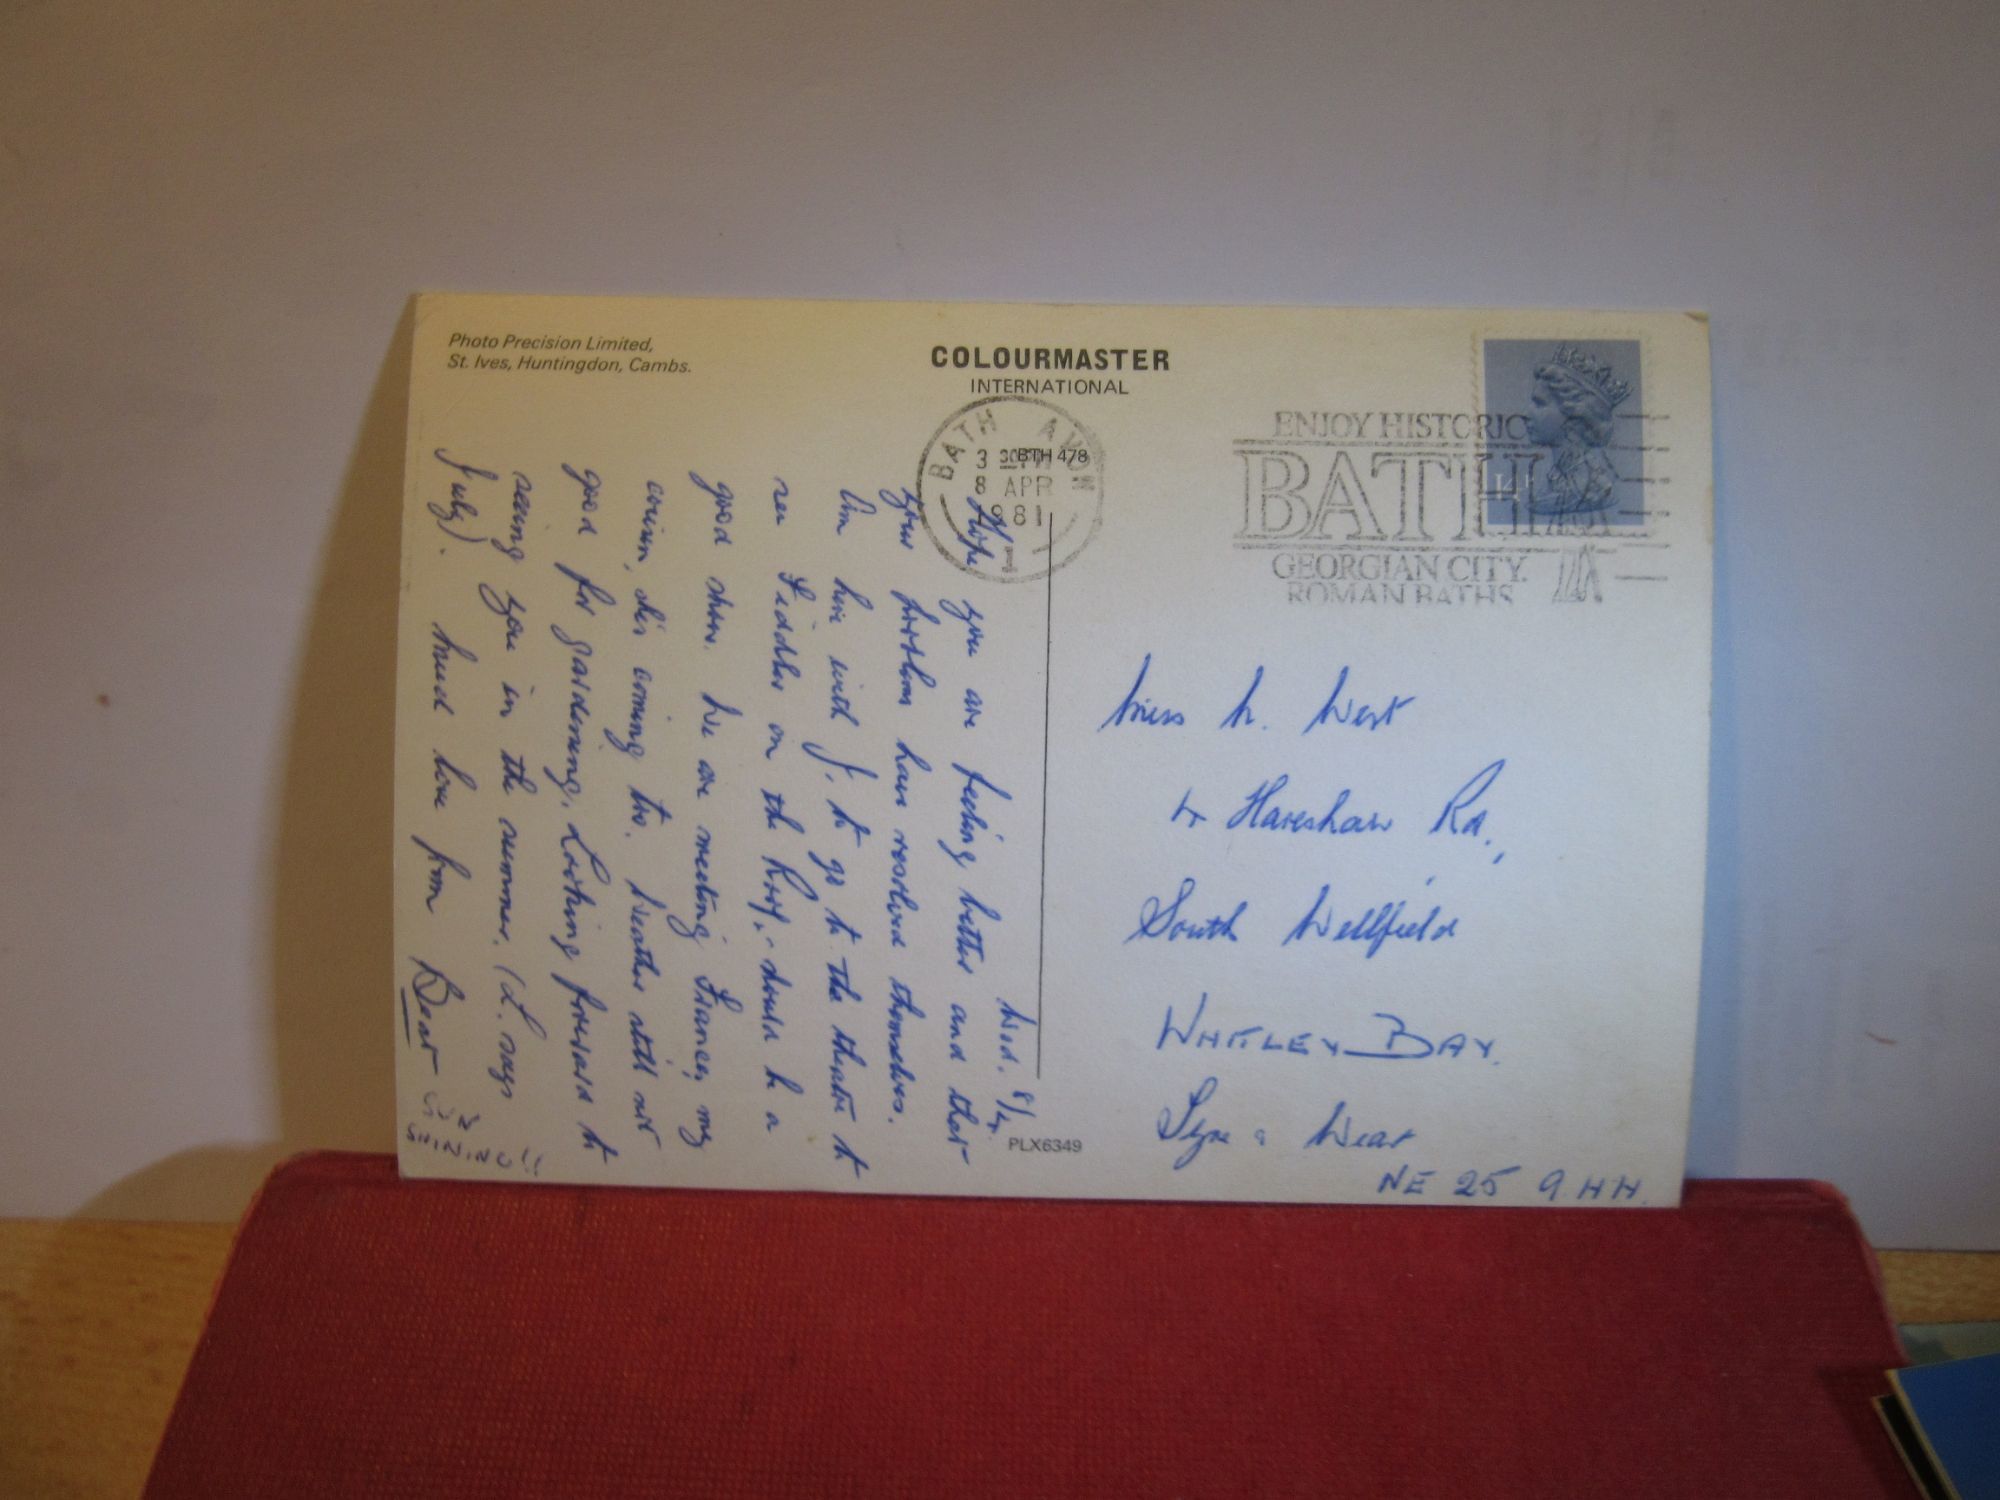 Photo Precision Limited,
St. Ives, Huntingdon, Cambs.
COLOURMASTER
INTERNATIONAL
BATH AVON
3 30PM
8 APR
1981
1
BTH 478
ENJOY HISTORIC
BATH
GEORGIAN CITY.
ROMAN BATHS
14P
Wed. 8/4.
Hope you are feeling better and that
your problems have resolved themselves.
Am here with J. to go to the theatre to
see Fiddler on the Roof, - should be a
good show. We are meeting Frances, my
cousin, she's coming too. Weather still not
good for gardening. Looking forward to
seeing you in the summer. (L. says
July). Much love from Bear
SUN
SHINING!!
Miss M. West
4 Hareshaw Rd.,
South Wellfield
WHITLEY BAY.
Tyne & Wear
NE 25 9HH.
PLX6349